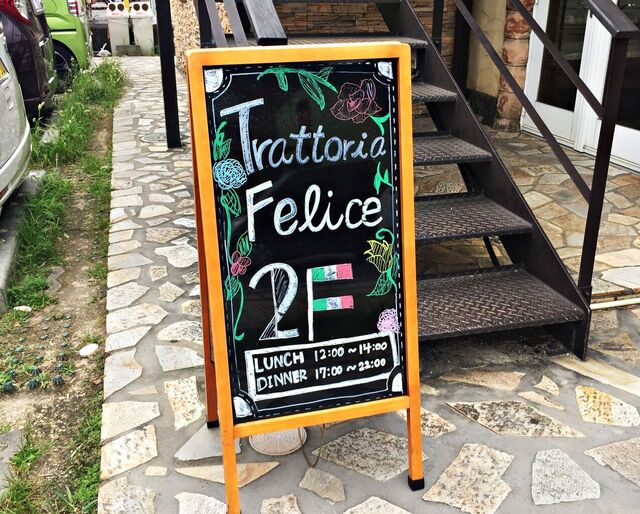 Trattoria
Felice
2F
LUNCH 12:00~14:00
DINNER 17:00~22:00